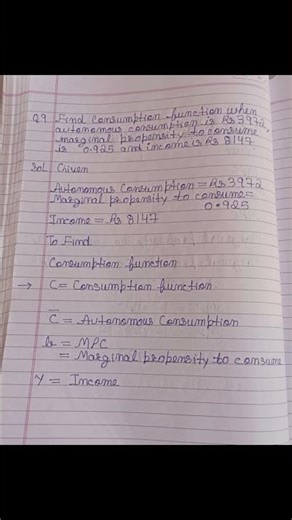 Q9 Find Consumption function when
autonomous consumption is Rs 3972,
marginal propensity to consume
is 0.925 and income is Rs 8147
Sol Given
Autonomous Consumption = Rs 3972
Marginal propensity to consume =
0.925
Income = Rs 8147
To Find
Consumption function
→ C = Consumption function
C̅ = Autonomous Consumption
b = MPC
= Marginal propensity to consume
Y = Income